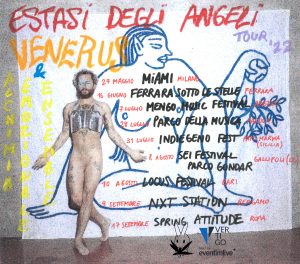 ESTASI DEGLI ANGELI
TOUR '22
VENERUS
&
ALCHIMIA
27 MAGGIO MiAMi MILANO
16 GIUGNO FERRARA SOTTO LE STELLE FERRARA
7 LUGLIO MENGO MUSIC FESTIVAL AREZZO
28 LUGLIO PARCO DELLA MUSICA
31 LUGLIO INDIEGENO FEST
(SICILIA)
8 AGOSTO SEI FESTIVAL
PARCO GONDAR GALLIPOLI
10 AGOSTO LOCUS FESTIVAL BARI
9 SETTEMBRE NXT STATION BERGAMO
17 SETTEMBRE SPRING ATTITUDE ROMA
VERTIGO
eventimlive